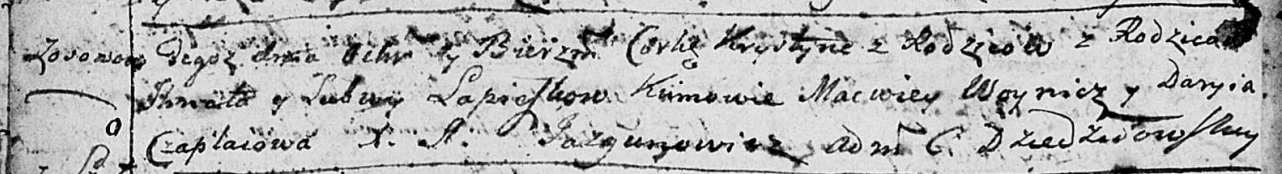 Zosonow Tegoż dnia Ochr y Bierzm Corkę Krystynę z Rodzicow z Rodzicow
Ihnata y Lubwy Łapieszkow Kumowie Macwiey Woynicz y Daryia
Czaplaiowa X. J. Jazgunowicz Adm C. Dziedziłowskiey